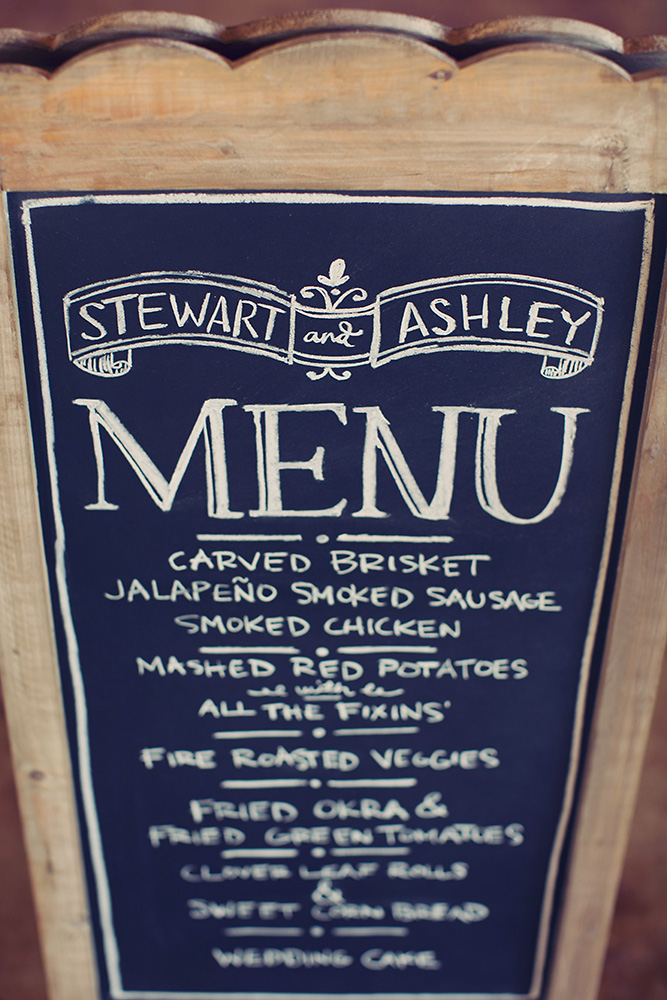 STEWART and ASHLEY
MENU
CARVED BRISKET
JALAPEÑO SMOKED SAUSAGE
SMOKED CHICKEN
MASHED RED POTATOES
with
ALL THE FIXINS'
FIRE ROASTED VEGGIES
FRIED OKRA &
FRIED GREEN TOMATOES
CLOVER LEAF ROLLS
&
SWEET CORN BREAD
WEDDING CAKE